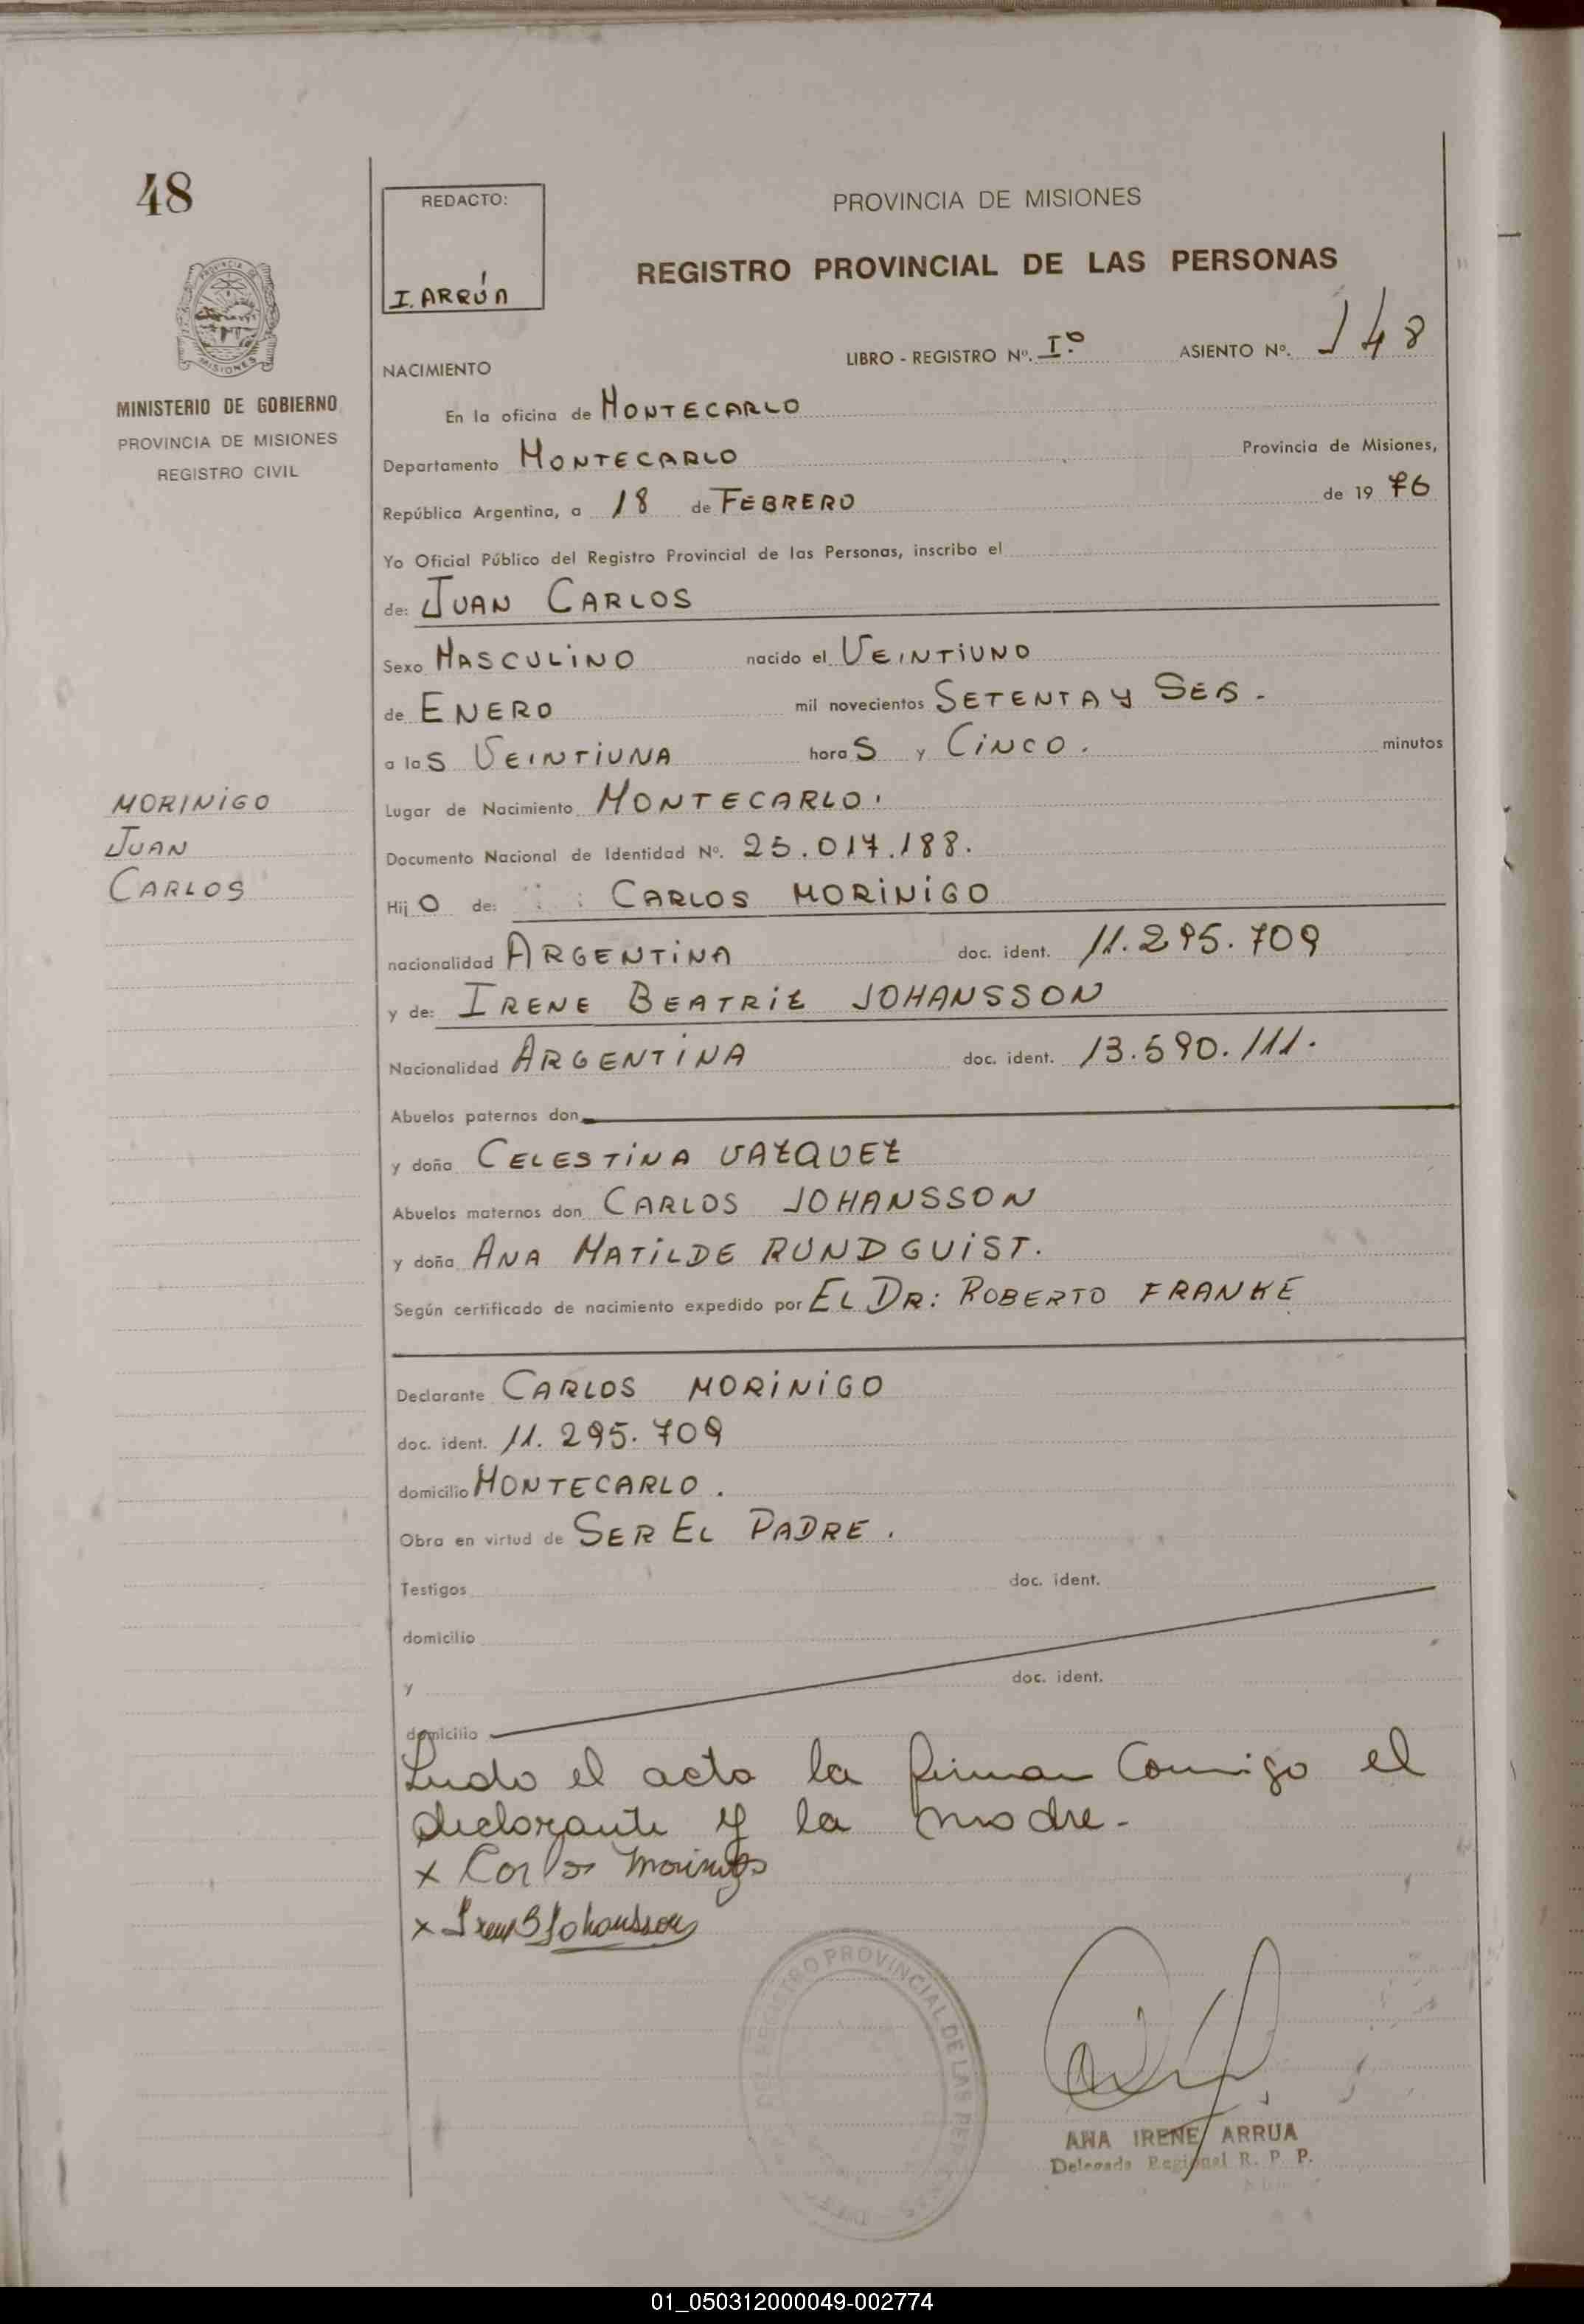 48
REDACTO:
I. ARRÚA
PROVINCIA DE MISIONES
REGISTRO PROVINCIAL DE LAS PERSONAS
LIBRO - REGISTRO Nº. Iº ASIENTO Nº. 148
NACIMIENTO
MINISTERIO DE GOBIERNO
PROVINCIA DE MISIONES
REGISTRO CIVIL
En la oficina de MONTECARLO
Departamento MONTECARLO Provincia de Misiones,
República Argentina, a 18 de FEBRERO de 19 76
Yo Oficial Público del Registro Provincial de las Personas, inscribo el
de: JUAN CARLOS
Sexo MASCULINO nacido el VEINTIUNO
de ENERO mil novecientos SETENTA Y SEIS.
a las VEINTIUNA horaS y CINCO. minutos
MORINIGO
JUAN
CARLOS
Lugar de Nacimiento MONTECARLO.
Documento Nacional de Identidad Nº. 25.017.188.
Hij O de: CARLOS MORINIGO
nacionalidad ARGENTINA doc. ident. 11.295.709
y de: IRENE BEATRIZ JOHANSSON
Nacionalidad ARGENTINA doc. ident. 13.590.111.
Abuelos paternos don
y doña CELESTINA VAZQUEZ
Abuelos maternos don CARLOS JOHANSSON
y doña ANA MATILDE RUNDGUIST.
Según certificado de nacimiento expedido por EL DR: ROBERTO FRANKE
Declarante CARLOS MORINIGO
doc. ident. 11.295.709
domicilio MONTECARLO.
Obra en virtud de SER EL PADRE.
Testigos doc. ident.
domicilio
y doc. ident.
domicilio
Leido el acta la firman Conmigo el
declarante y la madre.-
x Carlos Morinigo
x Irene B Johansson
REGISTRO PROVINCIAL DE LAS PERSONAS
ANA IRENE ARRUA
Delegada Regional R. P. P.
01_050312000049-002774